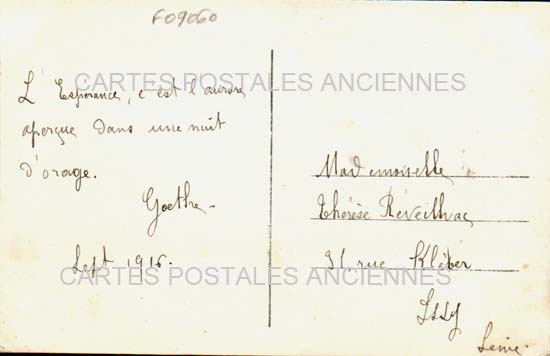 F09060
CARTES POSTALES ANCIENNES
L'Espérance, c'est l'aurore
aperçue dans une nuit
d'orage.
Goethe.
Sept 1916.
Mademoiselle
Thérèse Réveilhac
31 rue Kléber
Issy
Seine.
CARTES POSTALES ANCIENNES